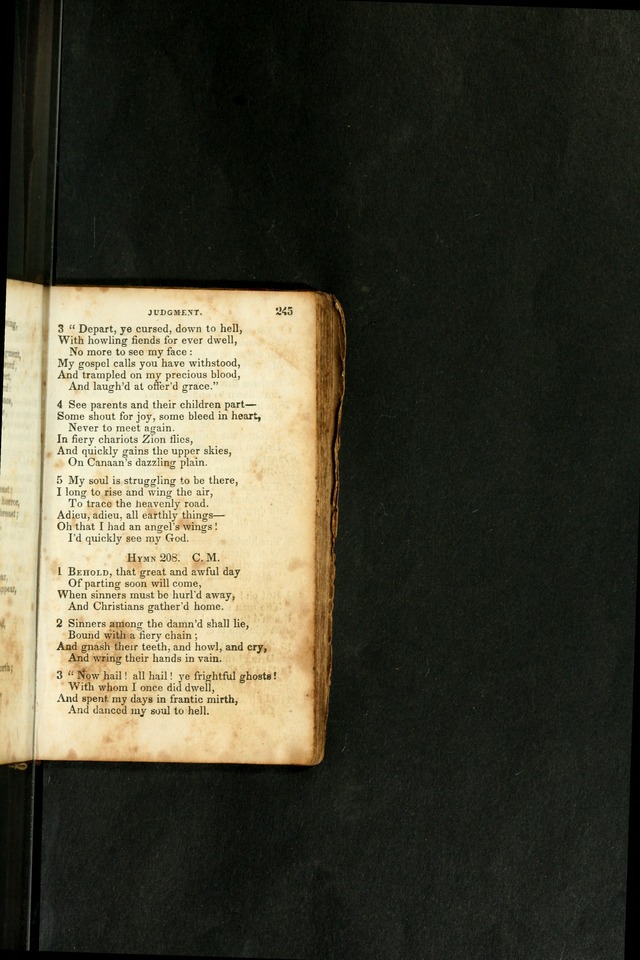 JUDGMENT. 245
3 “ Depart, ye cursed, down to hell,
With howling fiends for ever dwell,
No more to see my face :
My gospel calls you have withstood,
And trampled on my precious blood,
And laugh'd at offer'd grace.”
4 See parents and their children part—
Some shout for joy, some bleed in heart,
Never to meet again.
In fiery chariots Zion flies,
And quickly gains the upper skies,
On Canaan's dazzling plain.
5 My soul is struggling to be there,
I long to rise and wing the air,
To trace the heavenly road.
Adieu, adieu, all earthly things—
Oh that I had an angel's wings !
I'd quickly see my God.
HYMN 208. C. M.
1 BEHOLD, that great and awful day
Of parting soon will come,
When sinners must be hurl'd away,
And Christians gather'd home.
2 Sinners among the damn'd shall lie,
Bound with a fiery chain ;
And gnash their teeth, and howl, and cry,
And wring their hands in vain.
3 “ Now hail ! all hail ! ye frightful ghosts !
With whom I once did dwell,
And spent my days in frantic mirth,
And danced my soul to hell.